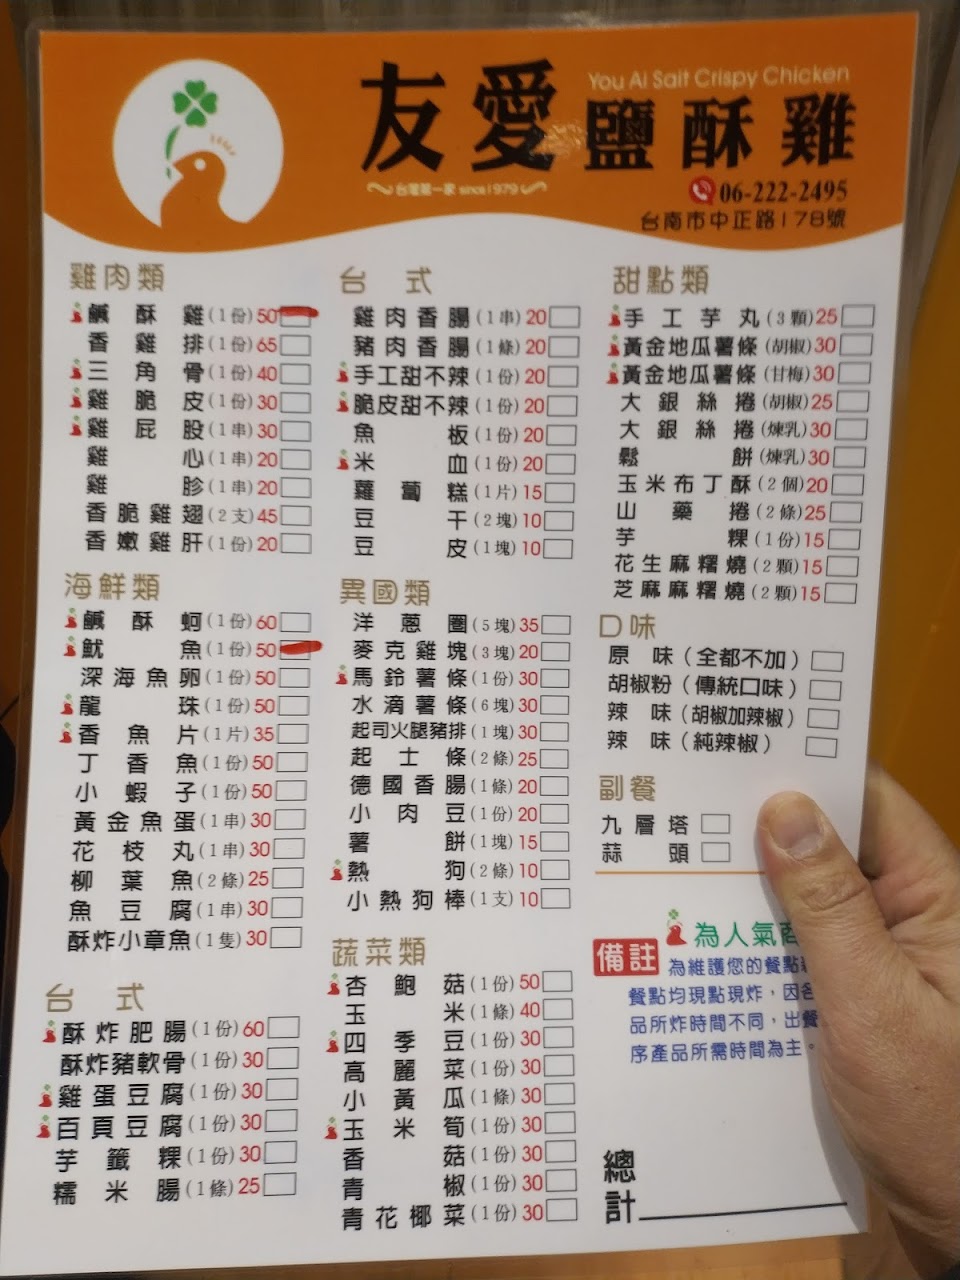 友愛鹽酥雞
You Ai Salt Crispy Chicken
台灣第一家 since1979
06-222-2495
台南市中正路178號
雞肉類
鹹酥雞(1份)50
香雞排(1份)65
三角骨(1份)40
雞脆皮(1份)30
雞屁股(1串)30
雞心(1串)20
雞胗(1串)20
香脆雞翅(2支)45
香嫩雞肝(1份)20
海鮮類
鹹酥蚵(1份)60
魷魚(1份)50
深海魚卵(1份)50
龍珠(1份)50
香魚片(1片)35
丁香魚(1份)50
小蝦子(1份)50
黃金魚蛋(1串)30
花枝丸(1串)30
柳葉魚(2條)25
魚豆腐(1串)30
酥炸小章魚(1隻)30
台式
酥炸肥腸(1份)60
酥炸豬軟骨(1份)30
雞蛋豆腐(1份)30
百頁豆腐(1份)30
芋籤粿(1份)30
糯米腸(1條)25
台式
雞肉香腸(1串)20
豬肉香腸(1條)20
手工甜不辣(1份)20
脆皮甜不辣(1份)20
魚板(1份)20
米血(1份)20
蘿蔔糕(1片)15
豆干(2塊)10
豆皮(1塊)10
異國類
洋蔥圈(5塊)35
麥克雞塊(3塊)20
馬鈴薯條(1份)30
水滴薯條(6塊)30
起司火腿豬排(1塊)30
起士條(2條)25
德國香腸(1條)20
小肉豆(1份)20
薯餅(1塊)15
熱狗(2條)10
小熱狗棒(1支)10
蔬菜類
杏鮑菇(1份)50
玉米(1條)40
四季豆(1份)30
高麗菜(1份)30
小黃瓜(1條)30
玉米筍(1份)30
香菇(1份)30
青椒(1份)30
青花椰菜(1份)30
甜點類
手工芋丸(3顆)25
黃金地瓜薯條(胡椒)30
黃金地瓜薯條(甘梅)30
大銀絲捲(胡椒)25
大銀絲捲(煉乳)30
鬆餅(煉乳)30
玉米布丁酥(2個)20
山藥捲(2條)25
芋粿(1份)15
花生麻糬燒(2顆)15
芝麻麻糬燒(2顆)15
口味
原味(全都不加)
胡椒粉(傳統口味)
辣味(胡椒加辣椒)
辣味(純辣椒)
副餐
九層塔
蒜頭
為人氣商
備註
為維護您的餐點
餐點均現點現炸，因各
品所炸時間不同，出餐
序產品所需時間為主。
總計